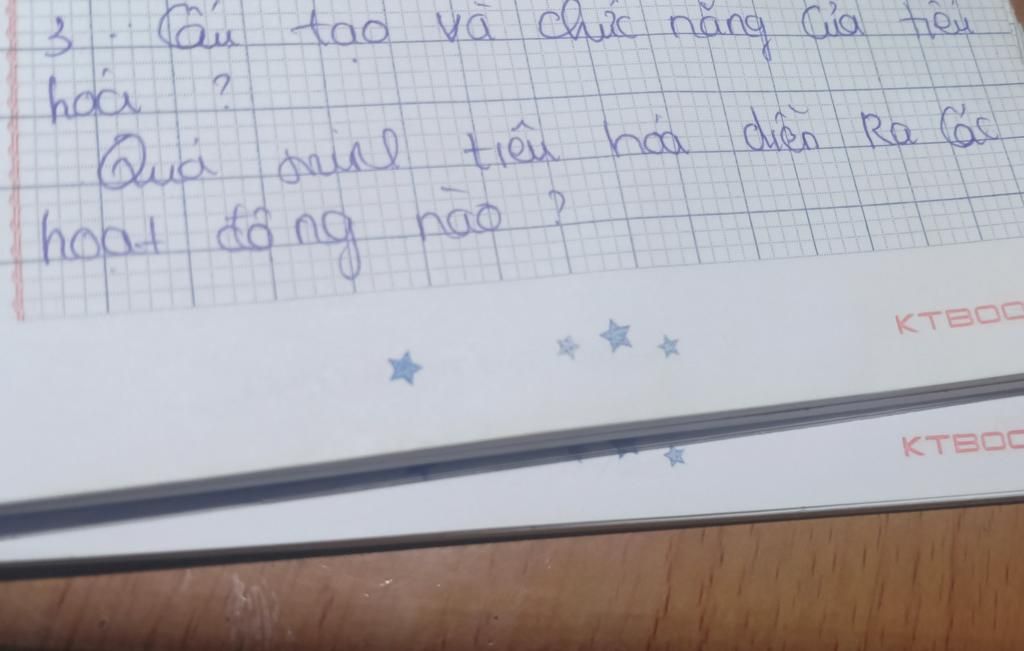 3. Cấu tạo và chức năng của tiêu
hoá ?
Quá tiêu hóa diễn Ra Các
hoạt động nào ?
KTBOO
KTBOO